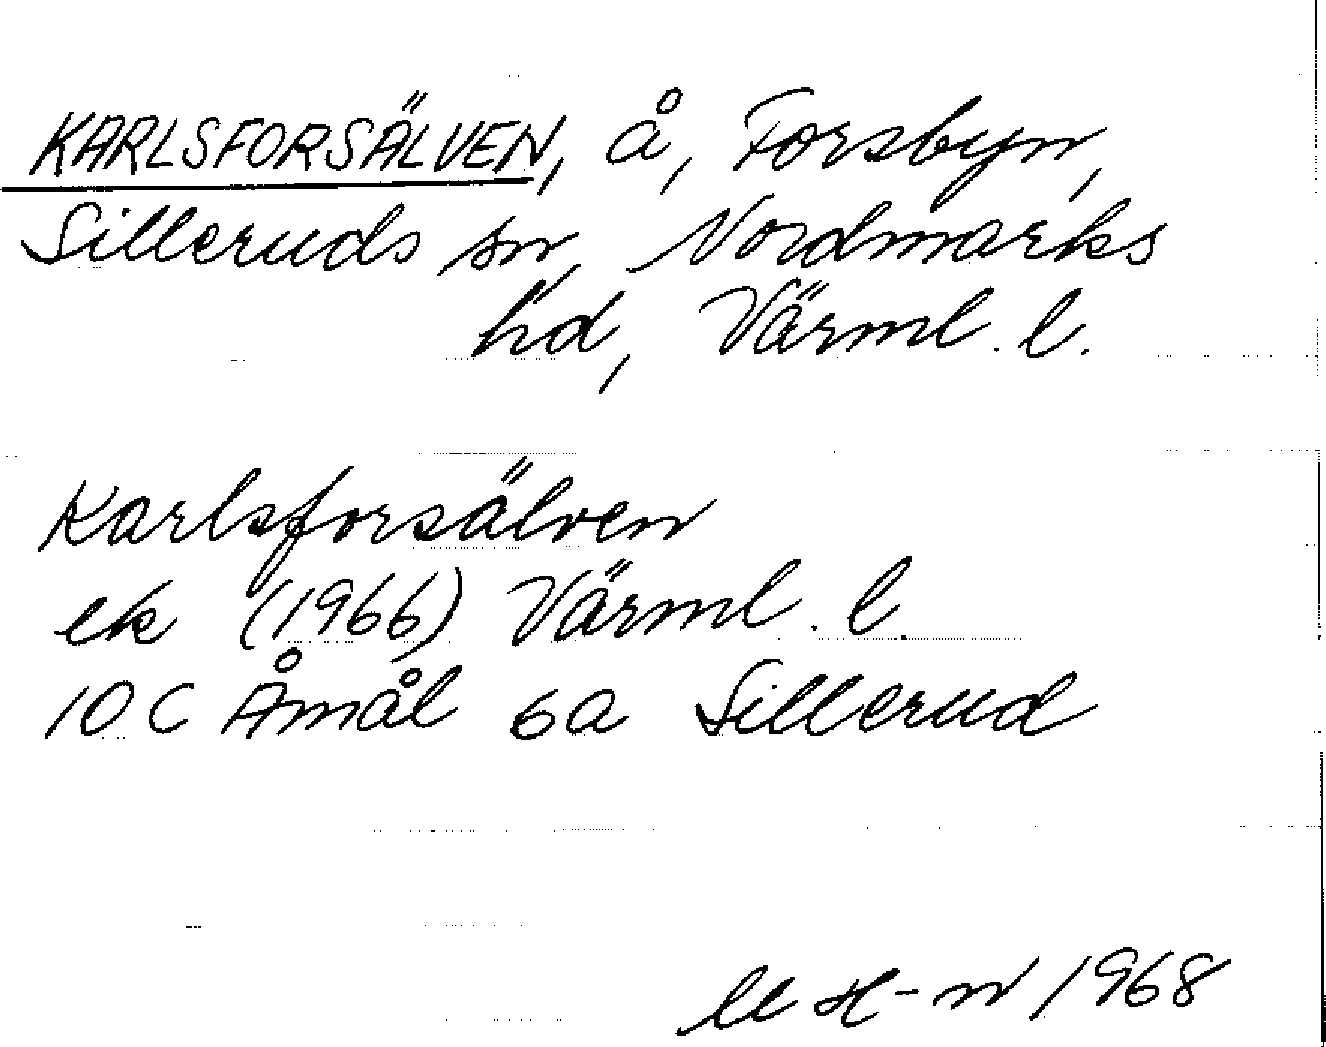 KARLSFORSÄLVEN, å, Forsbyn,
Silleruds sn, Nordmarks
hd, Värml. l.
Karlsforsälven
ek (1966) Värml. l.
10 C Åmål 6a Sillerud
1968